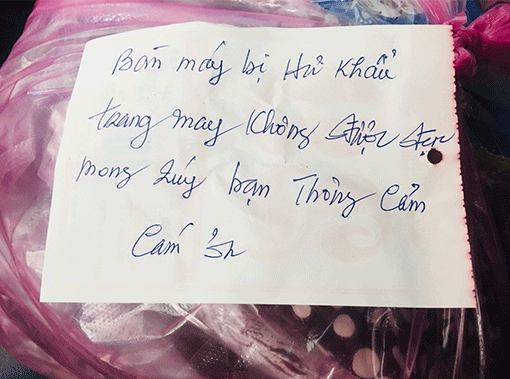 Bàn máy bị Hư Khẩu
trang may Không được đẹp
mong Quý bạn Thông Cảm
Cám ơn